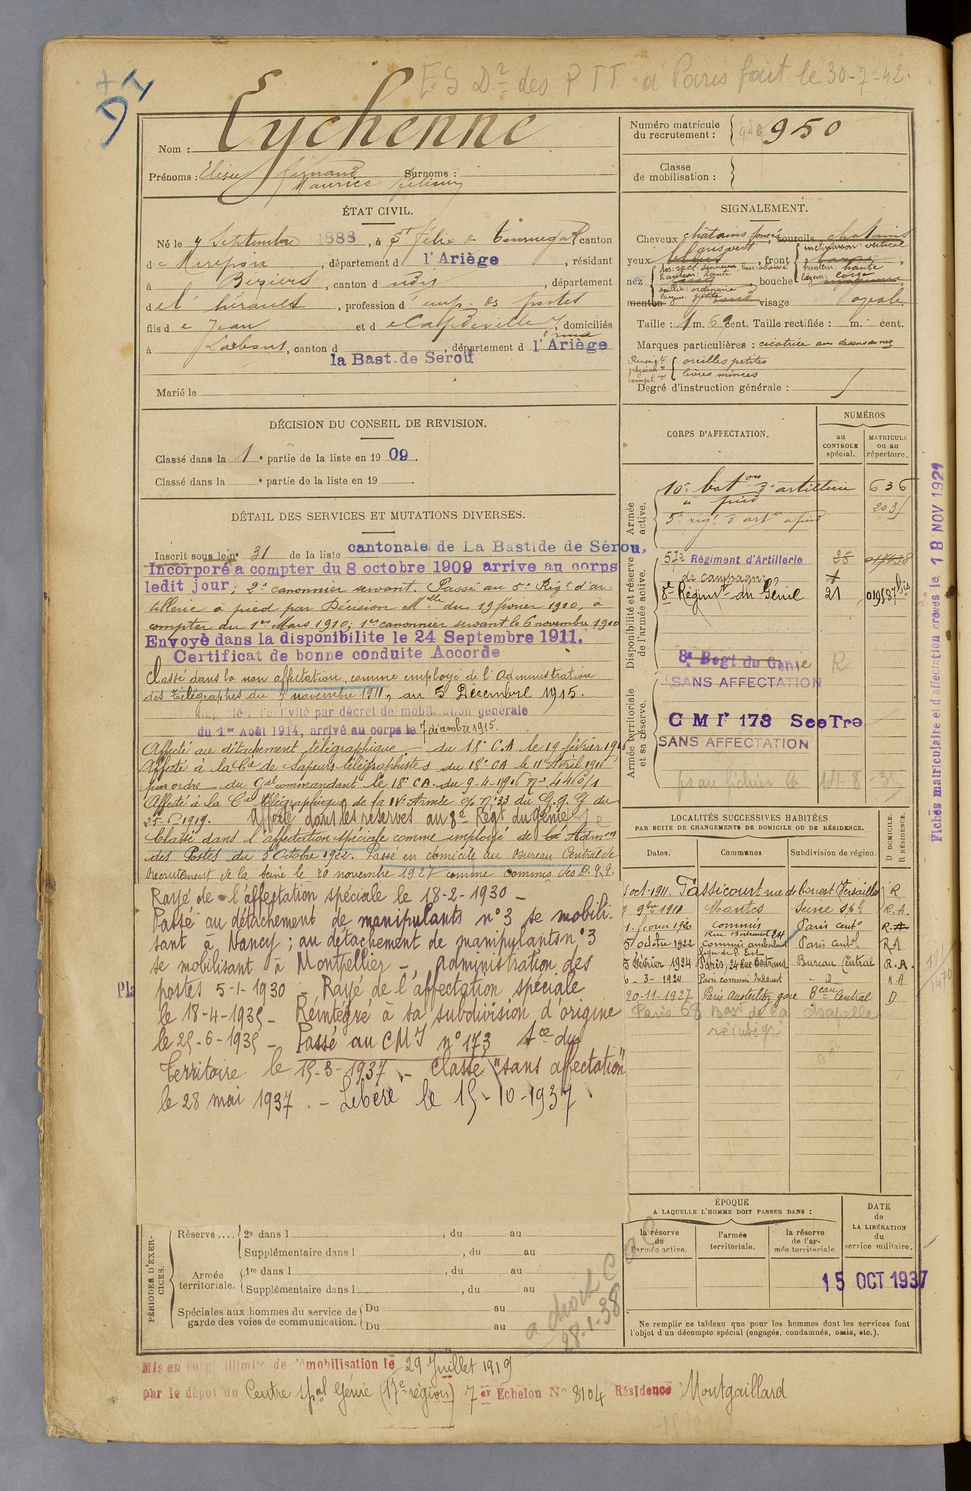 E S Dr des PTT à Paris fait le 30-7-42.
Nom : Eychenne
Prénoms : Elisée Fernand Surnoms :
Maurice
ÉTAT CIVIL.
Né le 7 Septembre 1888, à St Félix de Tournegat, canton
de Mirepoix, département d l'Ariège, résidant
à Béziers, canton d udit, département
de l'Hérault, profession d'emp. des postes
fils de Jean et de Capdeville, domiciliés
à Larbont, canton d la Bast. de Serou, département d l'Ariège
Marié le
DÉCISION DU CONSEIL DE REVISION.
Classé dans la 1e partie de la liste en 19 09.
Classé dans la e partie de la liste en 19
DÉTAIL DES SERVICES ET MUTATIONS DIVERSES.
Inscrit sous le n° 31 de la liste cantonale de La Bastide de Sérou,
Incorporé a compter du 8 octobre 1909 arrive au corps
ledit jour; 2e canonnier servant. Passé au 5e Régt d'ar-
tillerie à pied par Décision Mlle du 19 février 1910, à
compter du 1er Mars 1910; 1er canonnier servant le 6 novembre 1910
Envoyé dans la disponibilite le 24 Septembre 1911.
Certificat de bonne conduite Accorde
Classé dans la non affectation, comme employé de l'Administration
des Télégraphes du 7 novembre 1911, au 5 Décembre 1915.
Rappelé à l'activité par décret de mobilisation générale
du 1er Août 1914, arrivé au corps le 7 décembre 1915.
Affecté au détachement télégraphique du 18e C.A le 19 février
Affecté à la Cie de Sapeurs-télégraphistes du 18e CA le 11 Avril
par ordre du Gal commandant le 18e CA du 9-4-
Affecté à la Cie télégraphique de la IVe Armée
Affecté dans les réserves au 8e Régt du génie
Classé dans l'affectation spéciale comme employé de Admon
des Postes du 5 Octobre 1922. Passé en domicile au Bureau Central de
recrutement de la Seine le 20 novembre 1927 comme commis des P.T.T.
Rayé de l'affectation spéciale le 18-2-1930 -
Passé au détachement de manipulants n° 3 se mobili-
sant à Nancy ; au détachement de manipulants n° 3
se mobilisant à Montpellier - Administration des
postes 5-1-1930 - Rayé de l'affectation spéciale
le 18-4-1935 - Réintégré à sa subdivision d'origine
le 25-6-1935 - Passé au CMI n° 173 Sce du
territoire le 15-3-1937 - Classé "sans affectation"
le 28 mai 1937. - Libéré le 15-10-1937
PÉRIODES D'EXERCICES.
Réserve.... 2e dans l , du au
Supplémentaire dans l , du au
Armée territoriale. 1re dans l , du au
Supplémentaire dans l , du au
Spéciales aux hommes du service de garde des voies de communication. Du au
Du au
28-1-38
Mis en congé illimité de démobilisation le 29 Juillet 1919
par le dépôt du Centre spal Génie (17e région) 7er Echelon N° 8104 Résidence Montgaillard
Numéro matricule du recrutement : 950
Classe de mobilisation :
SIGNALEMENT.
Cheveux châtains foncé, sourcils châtains
yeux gris vert, front inclinaison vertical
hauteur: haute
largeur: large
nez , bouche
menton visage ovale
Taille : 1 m. 69 cent. Taille rectifiée : m. cent.
Marques particulières : cicatrice au dessous nez
oreilles petites
lèvres minces
Degré d'instruction générale :
CORPS D'AFFECTATION.
NUMÉROS
au CONTROLE spécial.
MATRICULE ou au répertoire.
Armée active.
10e baton d'artillerie à pied 636
5e régt d'arte à pied
Disponibilité et réserve de l'armée active.
52e Régiment d'Artillerie de campagne
8e Régimt du Génie 21
Armée territoriale et sa réserve.
8e Regt du Genie R
SANS AFFECTATION
C M Ir 173 SceTre
SANS AFFECTATION
Fiches matriculaire et d'affectation créées le 18 NOV 1921
LOCALITÉS SUCCESSIVES HABITÉES
PAR SUITE DE CHANGEMENTS DE DOMICILE OU DE RÉSIDENCE.
Dates. Communes Subdivision de région. D DOMICILE. R RÉSIDENCE.
1 oct. 1911. Passicourt rue de Versailles R
Mantes Seine R.A.
Commis Paris cent
5 Octobre 1922 Commis ambulant Paris cent R.A
ligne de l'Est
8 février 1924 Paris, 24 rue Botrand Bureau Central R.A.
R.A
20-11-1927 Paris Austerlitz gare Beau Central D
Paris 68 Bard de la Chapelle
ÉPOQUE
A LAQUELLE L'HOMME DOIT PASSER DANS :
la réserve de l'armée active.
l'armée territoriale.
la réserve de l'armée territoriale.
DATE de LA LIBÉRATION du service militaire.
15 OCT 1937
Ne remplir ce tableau que pour les hommes dont les services font
l'objet d'un décompte spécial (engagés, condamnés, omis, etc.).